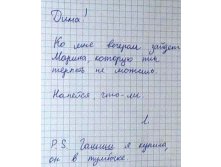 Дина!
Ко мне вечером зайдет
Марина, которую ты
терпеть не можешь
Напейся, что-ли
Л.
P.S. Гашиш я купила,
он в тумбочке